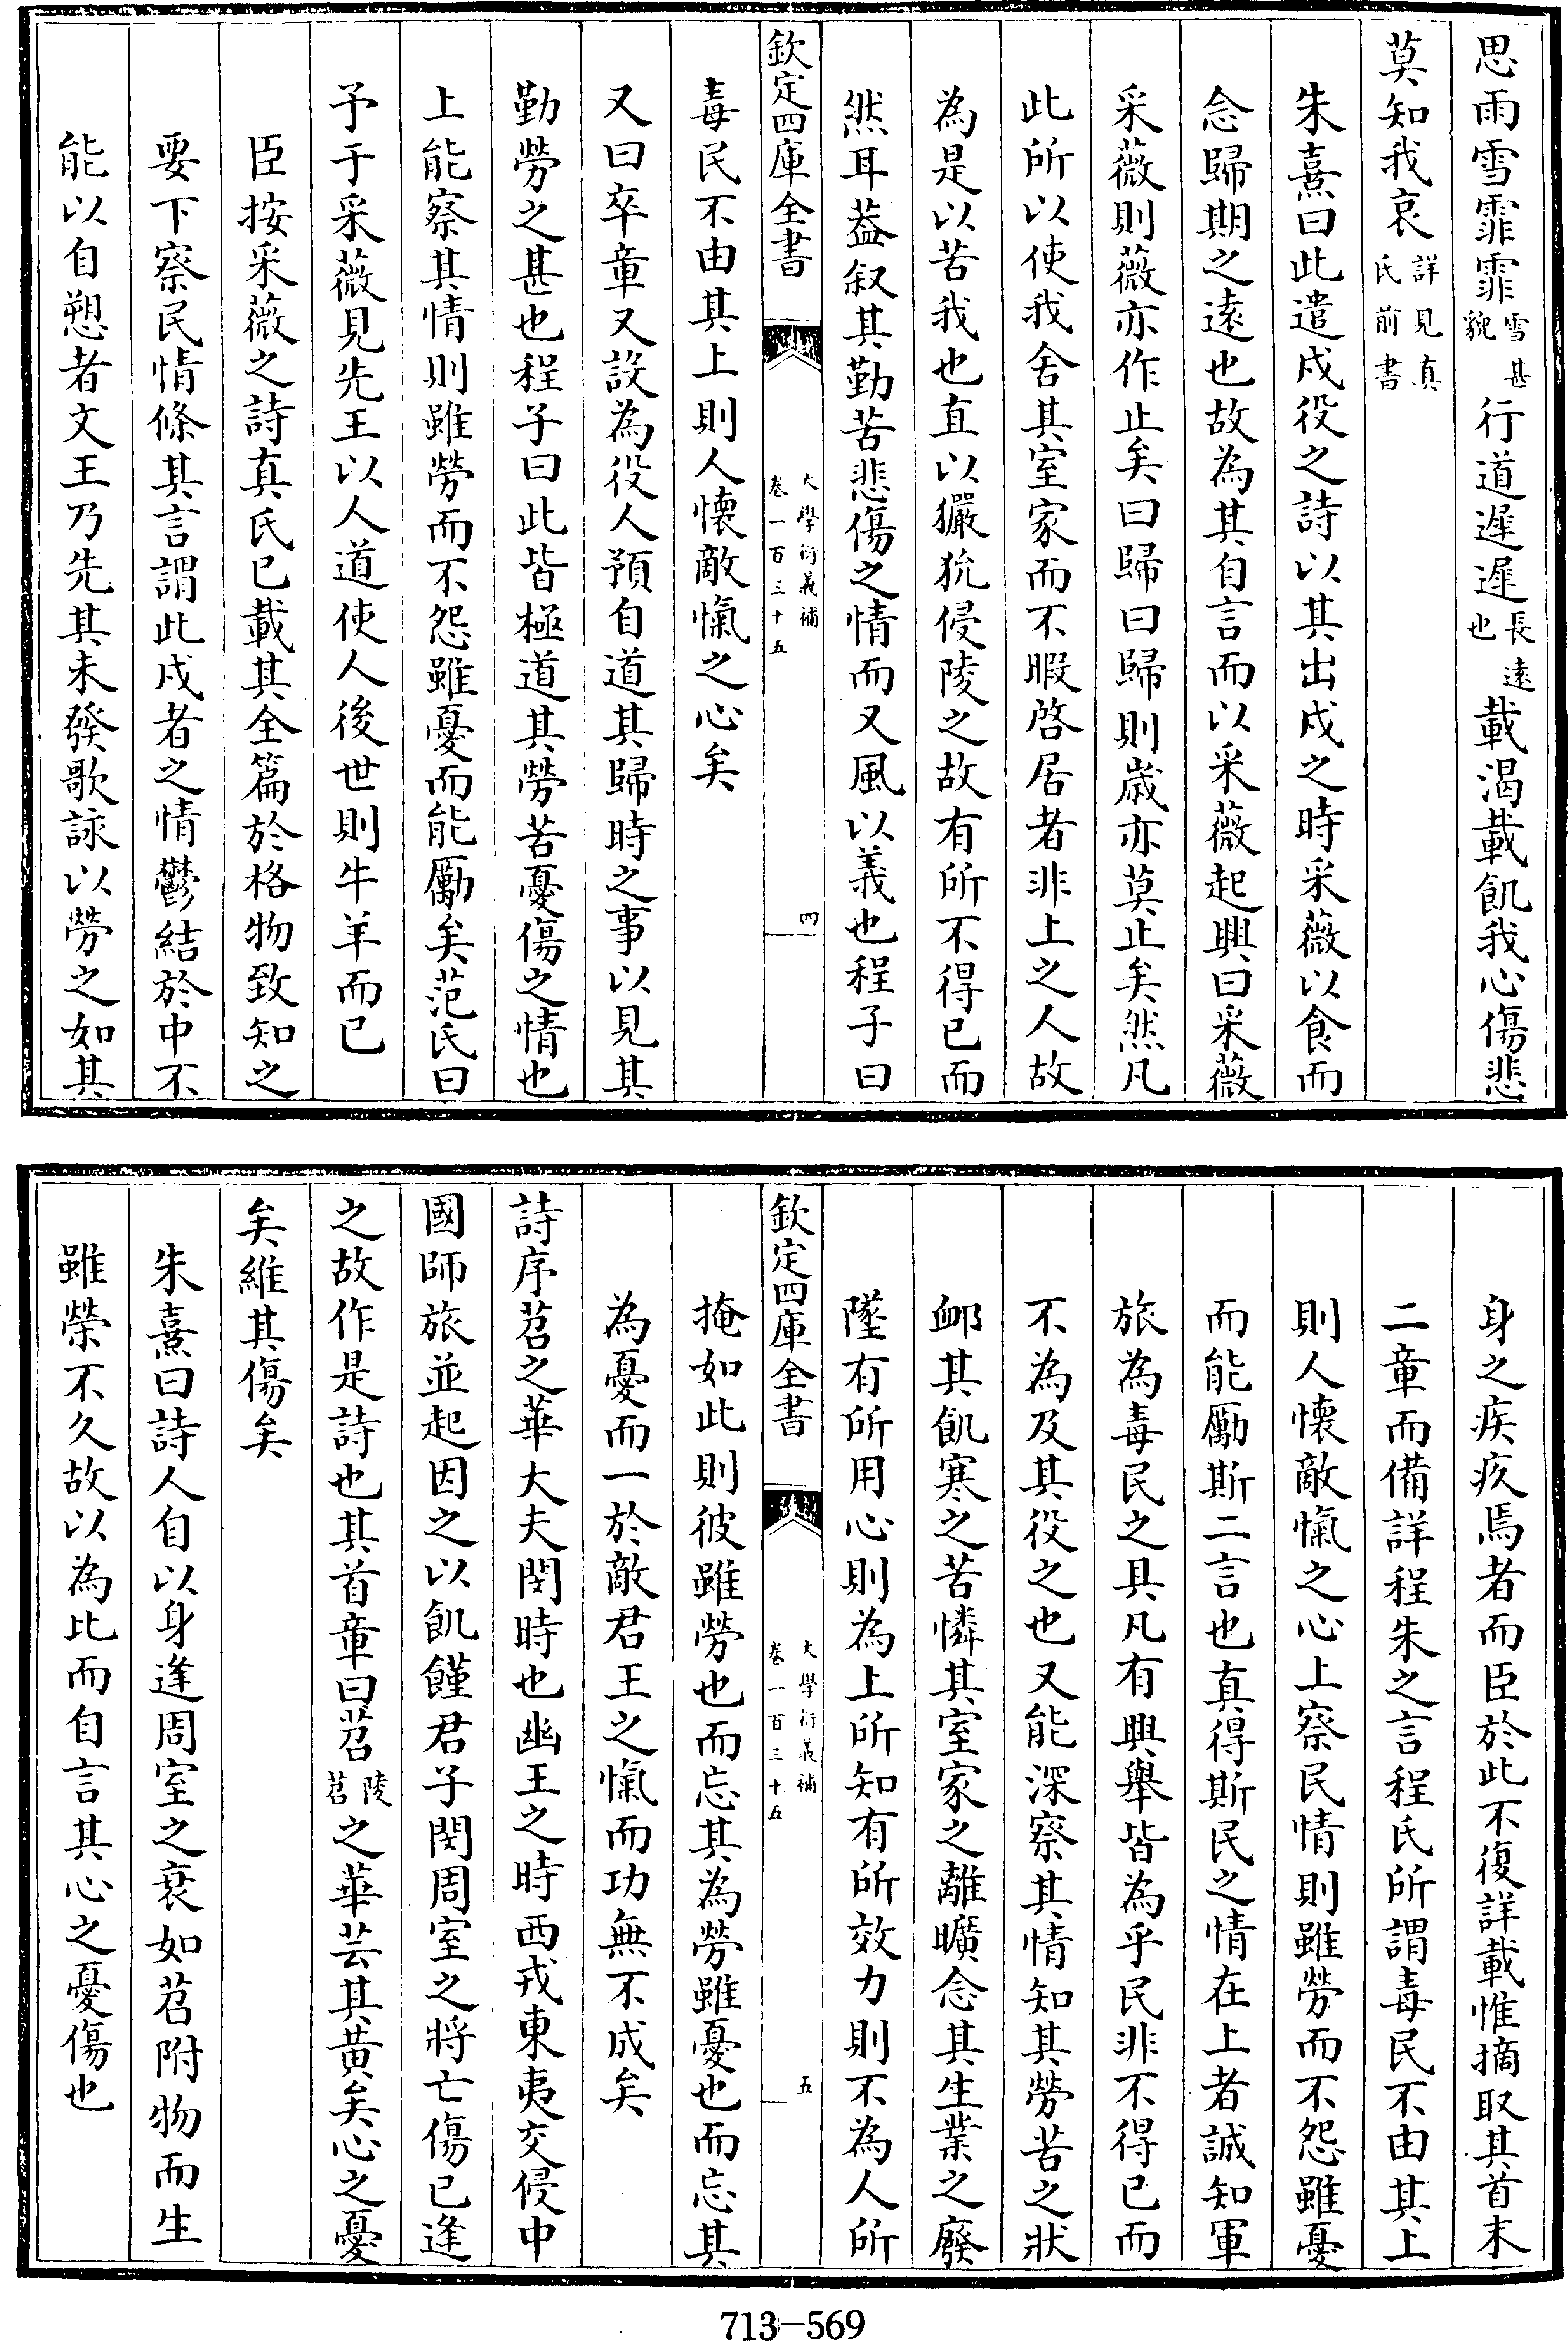 思雨雪霏霏雪甚貌行道遲遲長遠也載渴載飢我心傷悲
莫知我哀詳見真氏前書
朱熹曰此遣戍役之詩以其出戍之時采薇以食而
念歸期之遠也故為其自言而以采薇起興曰采薇
采薇則薇亦作止矣曰歸曰歸則歲亦莫止矣然凡
此所以使我舍其室家而不暇啓居者非上之人故
為是以苦我也直以玁狁侵陵之故有所不得已而
然耳葢叙其勤苦悲傷之情而又風以義也程子曰
欽定四庫全書
大學衍義補
卷一百三十五
四
毒民不由其上則人懷敵愾之心矣
又曰卒章又設為役人預自道其歸時之事以見其
勤勞之甚也程子曰此皆極道其勞苦憂傷之情也
上能察其情則雖勞而不怨雖憂而能勵矣范氏曰
予于采薇見先王以人道使人後世則牛羊而已
臣按采薇之詩真氏已載其全篇於格物致知之
要下察民情條其言謂此戍者之情鬱結於中不
能以自愬者文王乃先其未發歌詠以勞之如其
身之疾疚焉者而臣於此不復詳載惟摘取其首末
二章而備詳程朱之言程氏所謂毒民不由其上
則人懷敵愾之心上察民情則雖勞而不怨雖憂
而能勵斯二言也真得斯民之情在上者誠知軍
旅為毒民之具凡有興舉皆為乎民非不得已而
不為及其役之也又能深察其情知其勞苦之狀
䘏其飢寒之苦憐其室家之離曠念其生業之廢
墜有所用心則為上所知有所效力則不為人所
欽定四庫全書
大學衍義補
卷一百三十五
五
掩如此則彼雖勞也而忘其為勞雖憂也而忘其
為憂而一於敵君王之愾而功無不成矣
詩序苕之華大夫閔時也幽王之時西戎東夷交侵中
國師旅並起因之以飢饉君子閔周室之將亡傷已逢
之故作是詩也其首章曰苕陵苕之華芸其黄矣心之憂
矣維其傷矣
朱熹曰詩人自以身逢周室之衰如苕附物而生
雖榮不久故以為比而自言其心之憂傷也
713-569